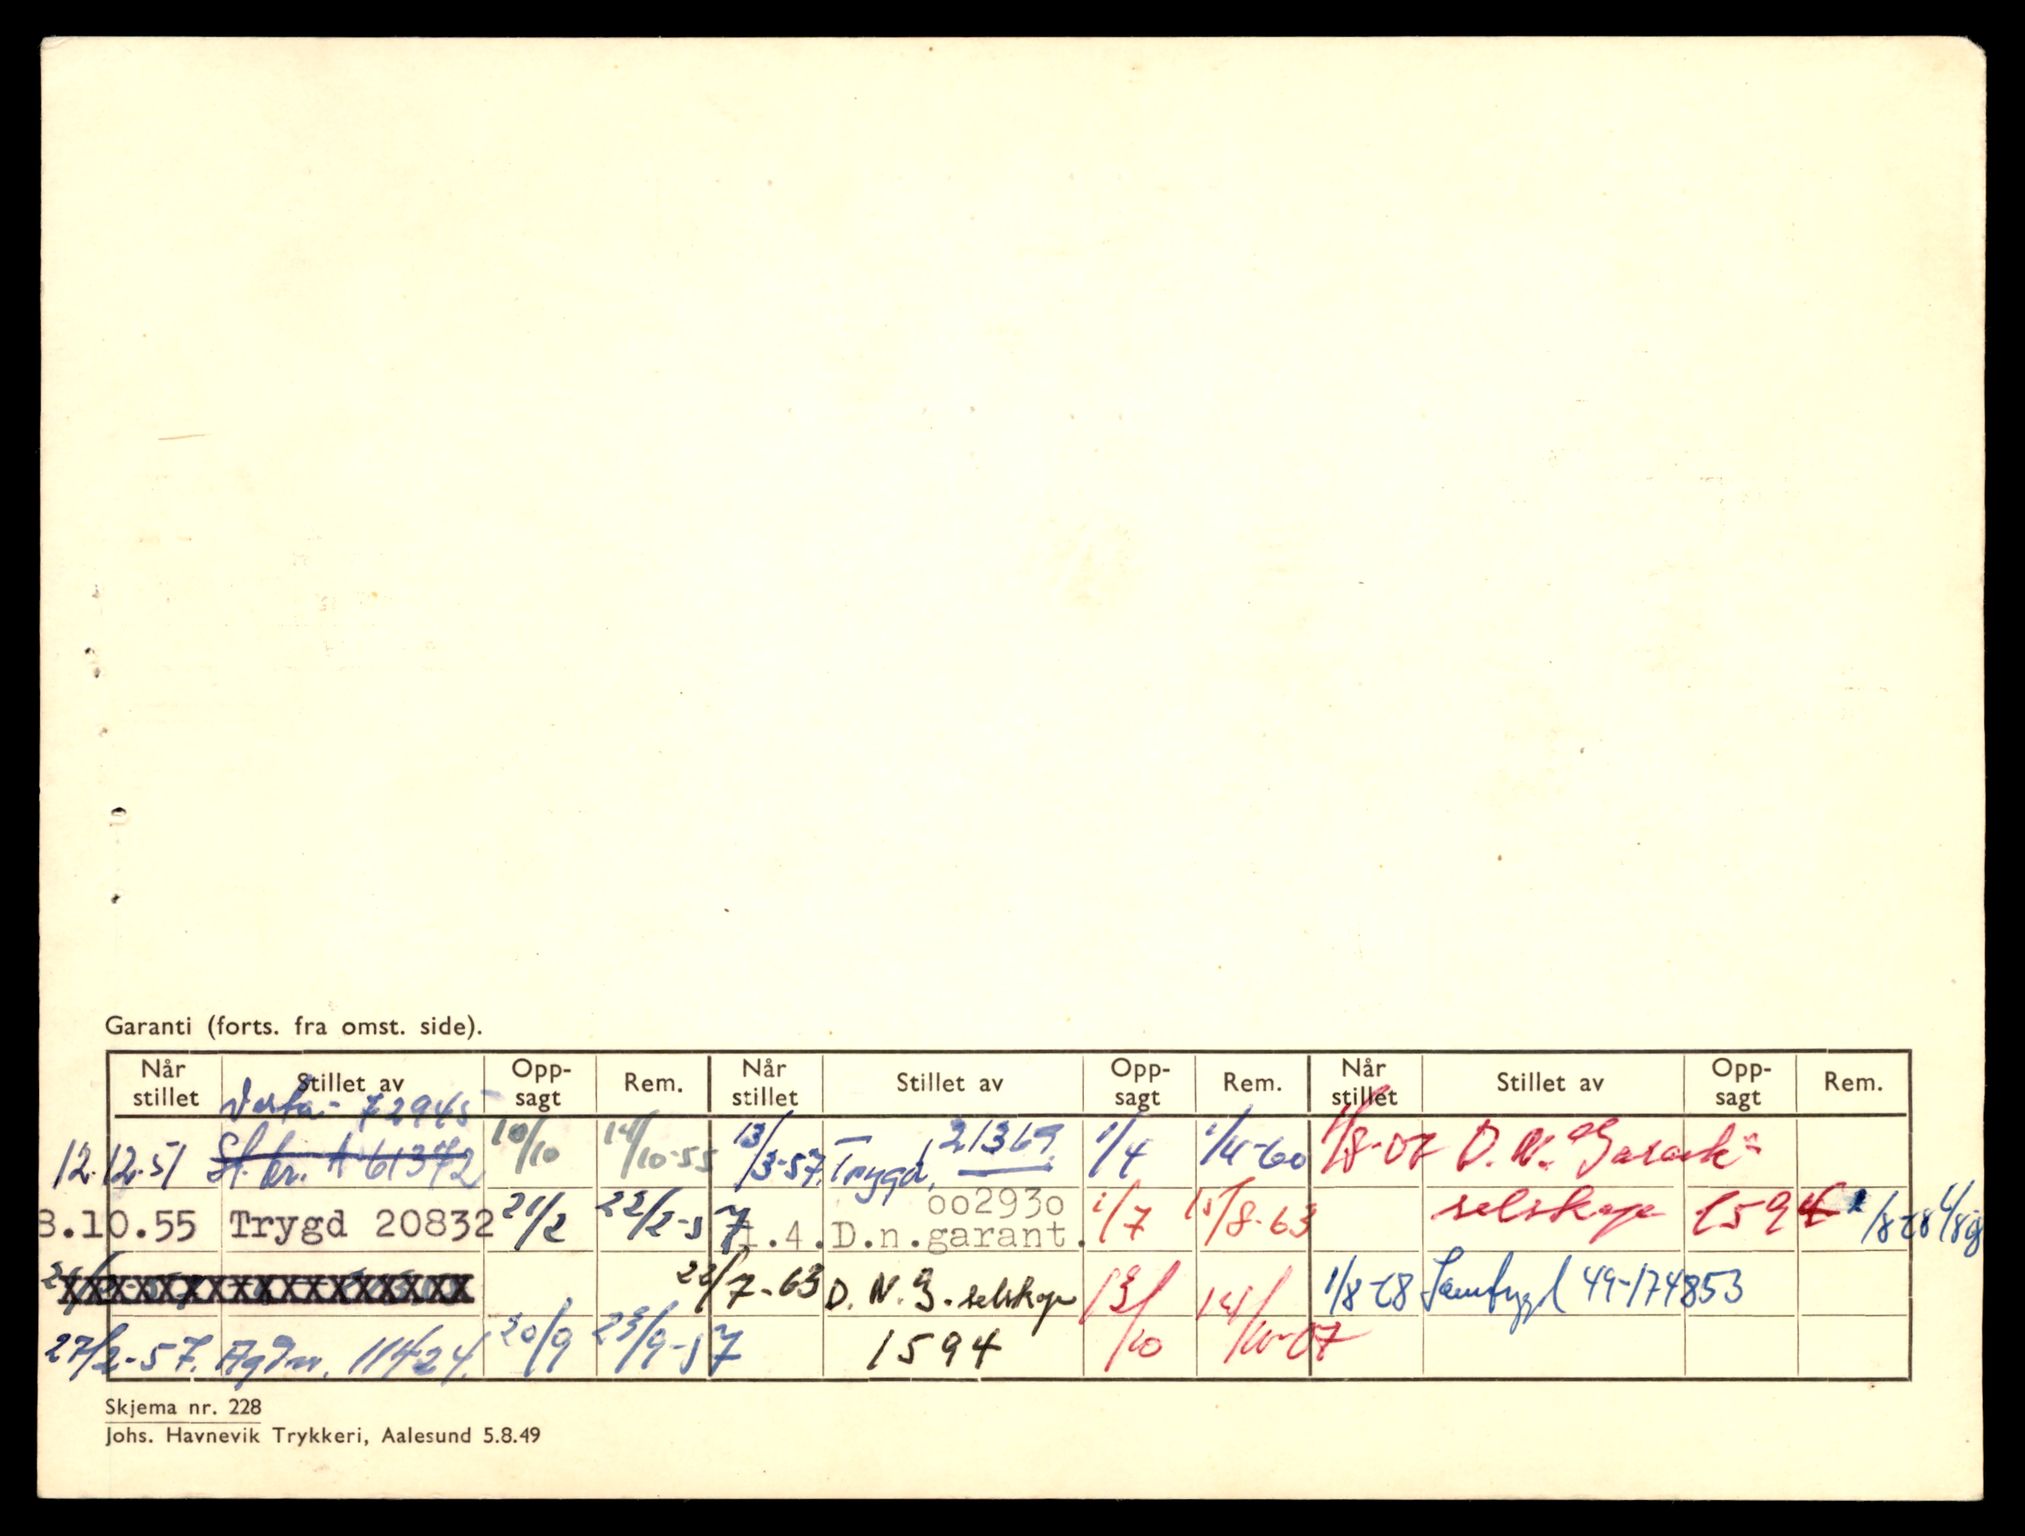 Garanti (forts. fra omst. side).
Når stillet Stillet av Opp-sagt Rem. Når stillet Stillet av Opp-sagt Rem. Når stillet Stillet av Opp-sagt Rem.
72945
12.12.51 St. br. A 61372 10/10 14/10-55 13/3-57. Trygd, 21369. 1/4 1/4-60 D. N. Garanti-
8.10.55 Trygd 20832 21/2 22/2-57 1.4. D.n.garant. oo293o 1/7 15/8-63 selskap 1594
XXXXXXXXXXXXXXXXXX 22/7-63 D. N. G. selskap 13/10 1/8 Samtrygd 49-174853
27/2-57. Agdn. 11424. 20/9 23/9-57 1594
Skjema nr. 228
Johs. Havnevik Trykkeri, Aalesund 5.8.49